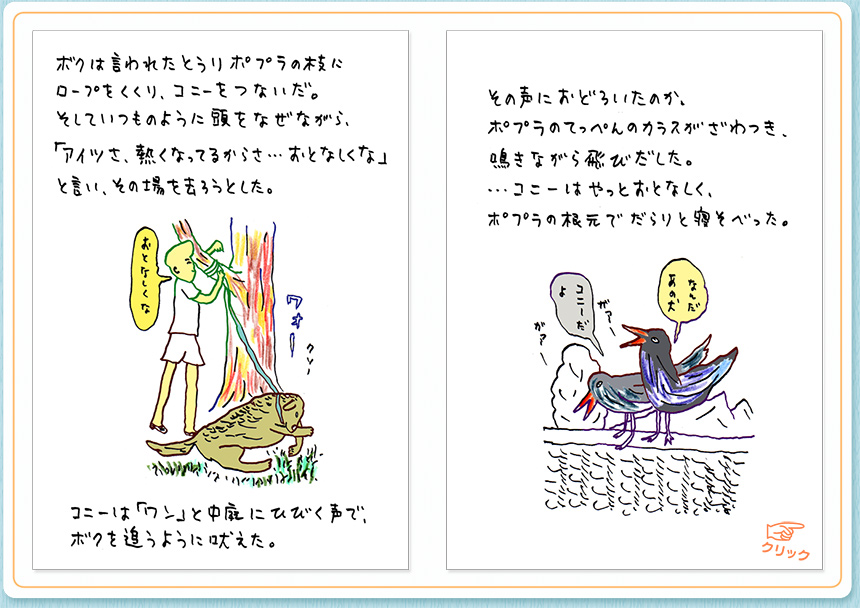 ボクは言われたとうり ポプラの枝に
ロープをくくり、コニーをつないだ。
そしていつものように 頭をなぜながら、
「アイツさ、熱くなってるからさ…おとなしくな」
と言い、その場を去ろうとした。
おとなしくな
ワオー
クゥー
コニーは「ワン」と中庭にひびく声で、
ボクを追うように吠えた。
その声に おどろいたのか、
ポプラのてっぺんのカラスが ざわつき、
鳴きながら 飛びだした。
…コニーは やっとおとなしく、
ポプラの根元で だらりと寝そべった。
なんだ
あの犬
コニーだ
よ
ガァー
がァー
クリック